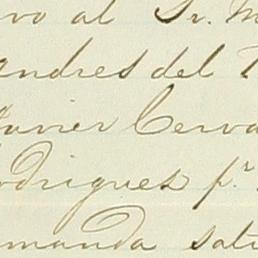 vo al Sr. M
andres del
avier Cerva
odrigues pr.
manda sati